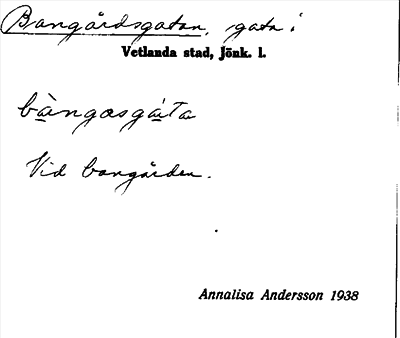 Bangårdsgatan, gata i
Vetlanda stad, Jönk. l.
bàngosgáta
Vid bangården.
Annalisa Andersson 1938